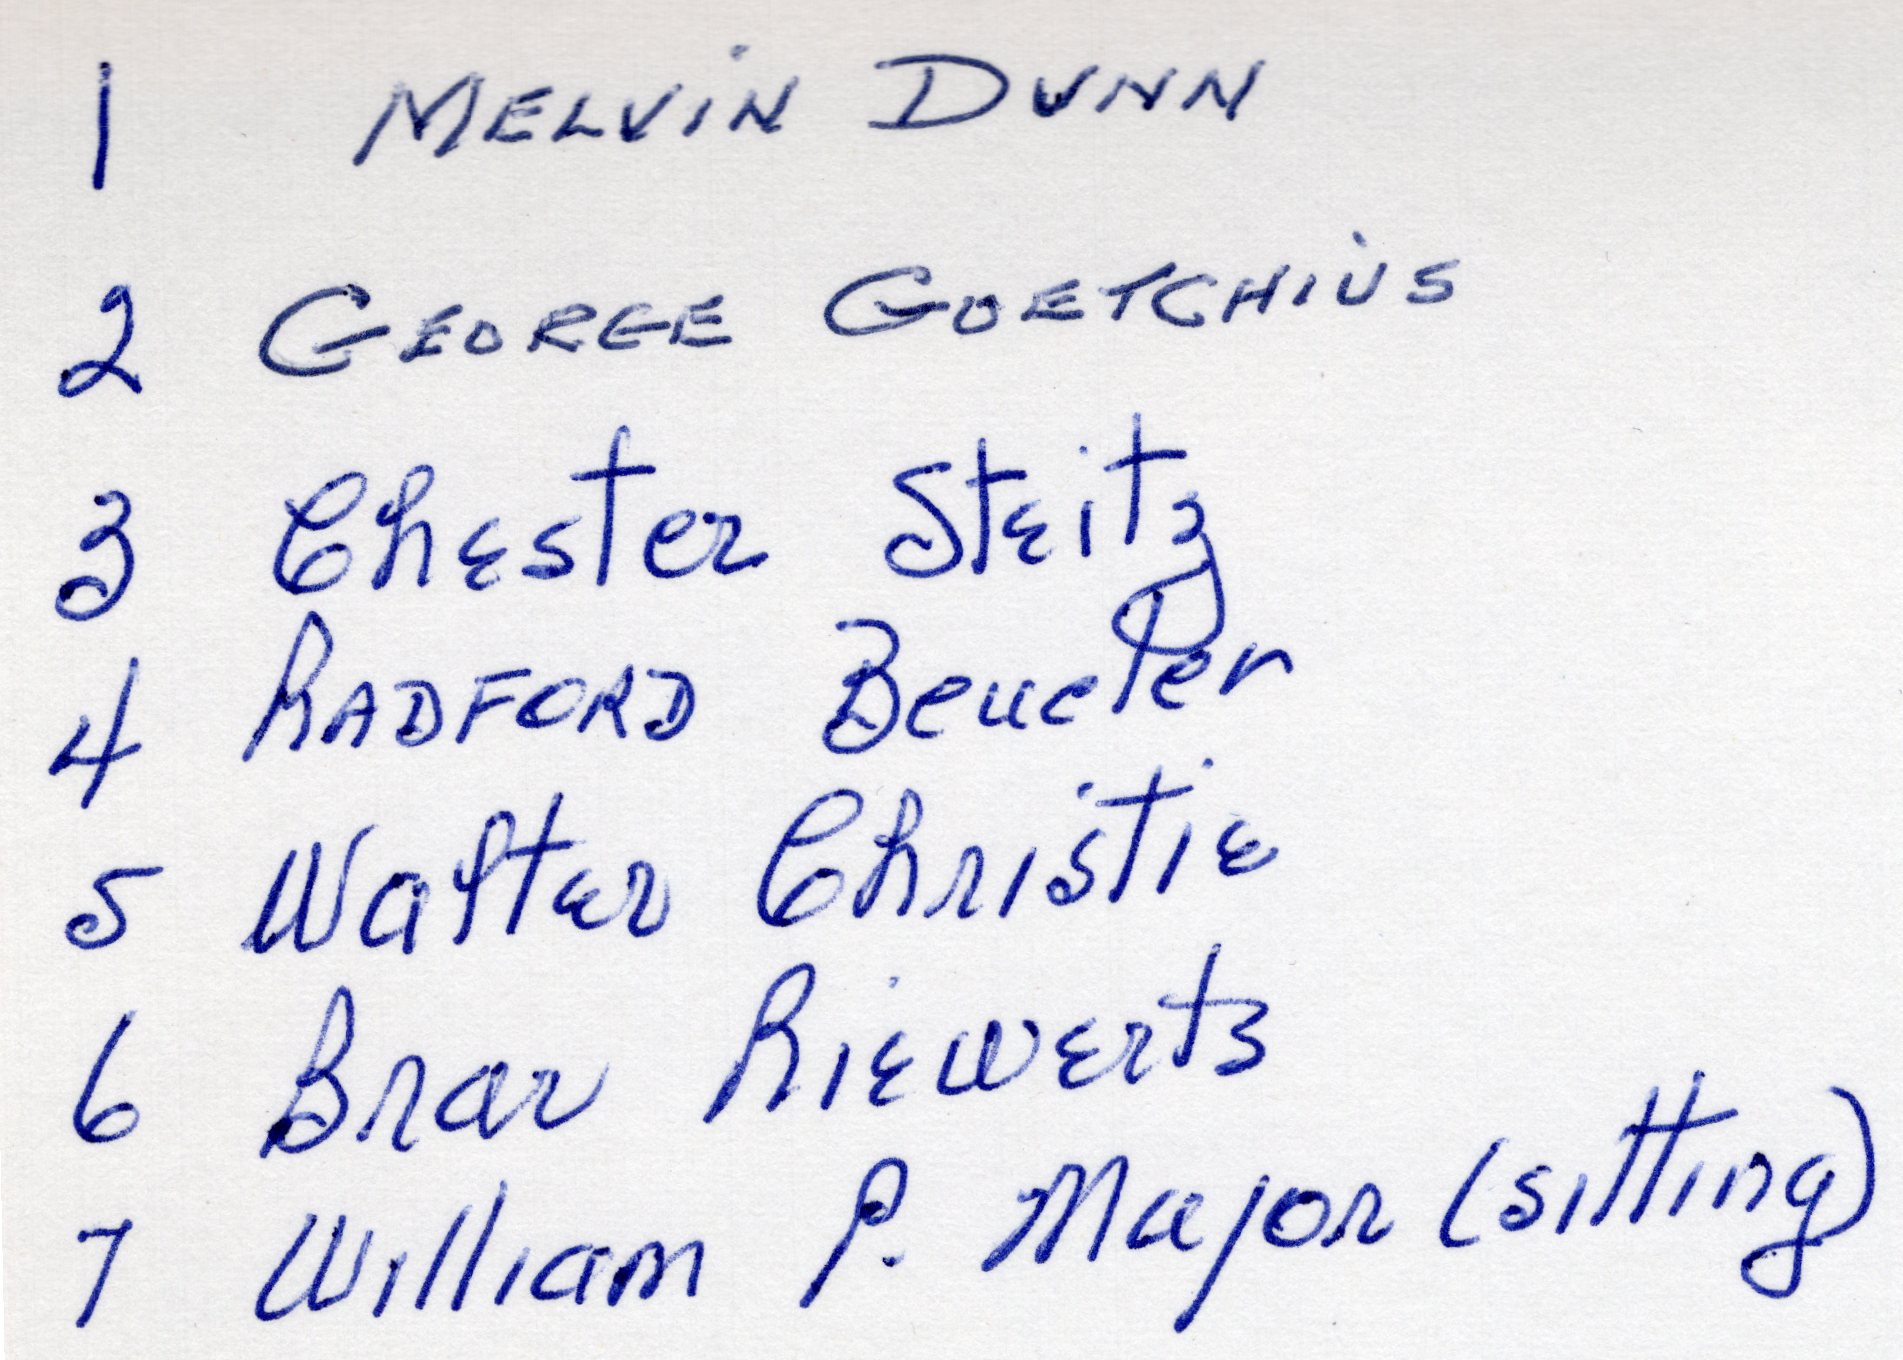 1 MELViN DUNN
2 GEORGE GOETCHiUS
3 Chester Steitz
4 RADFORD Beucler
5 Walter Christie
6 Brar Riewerts
7 William P. Major (sitting)